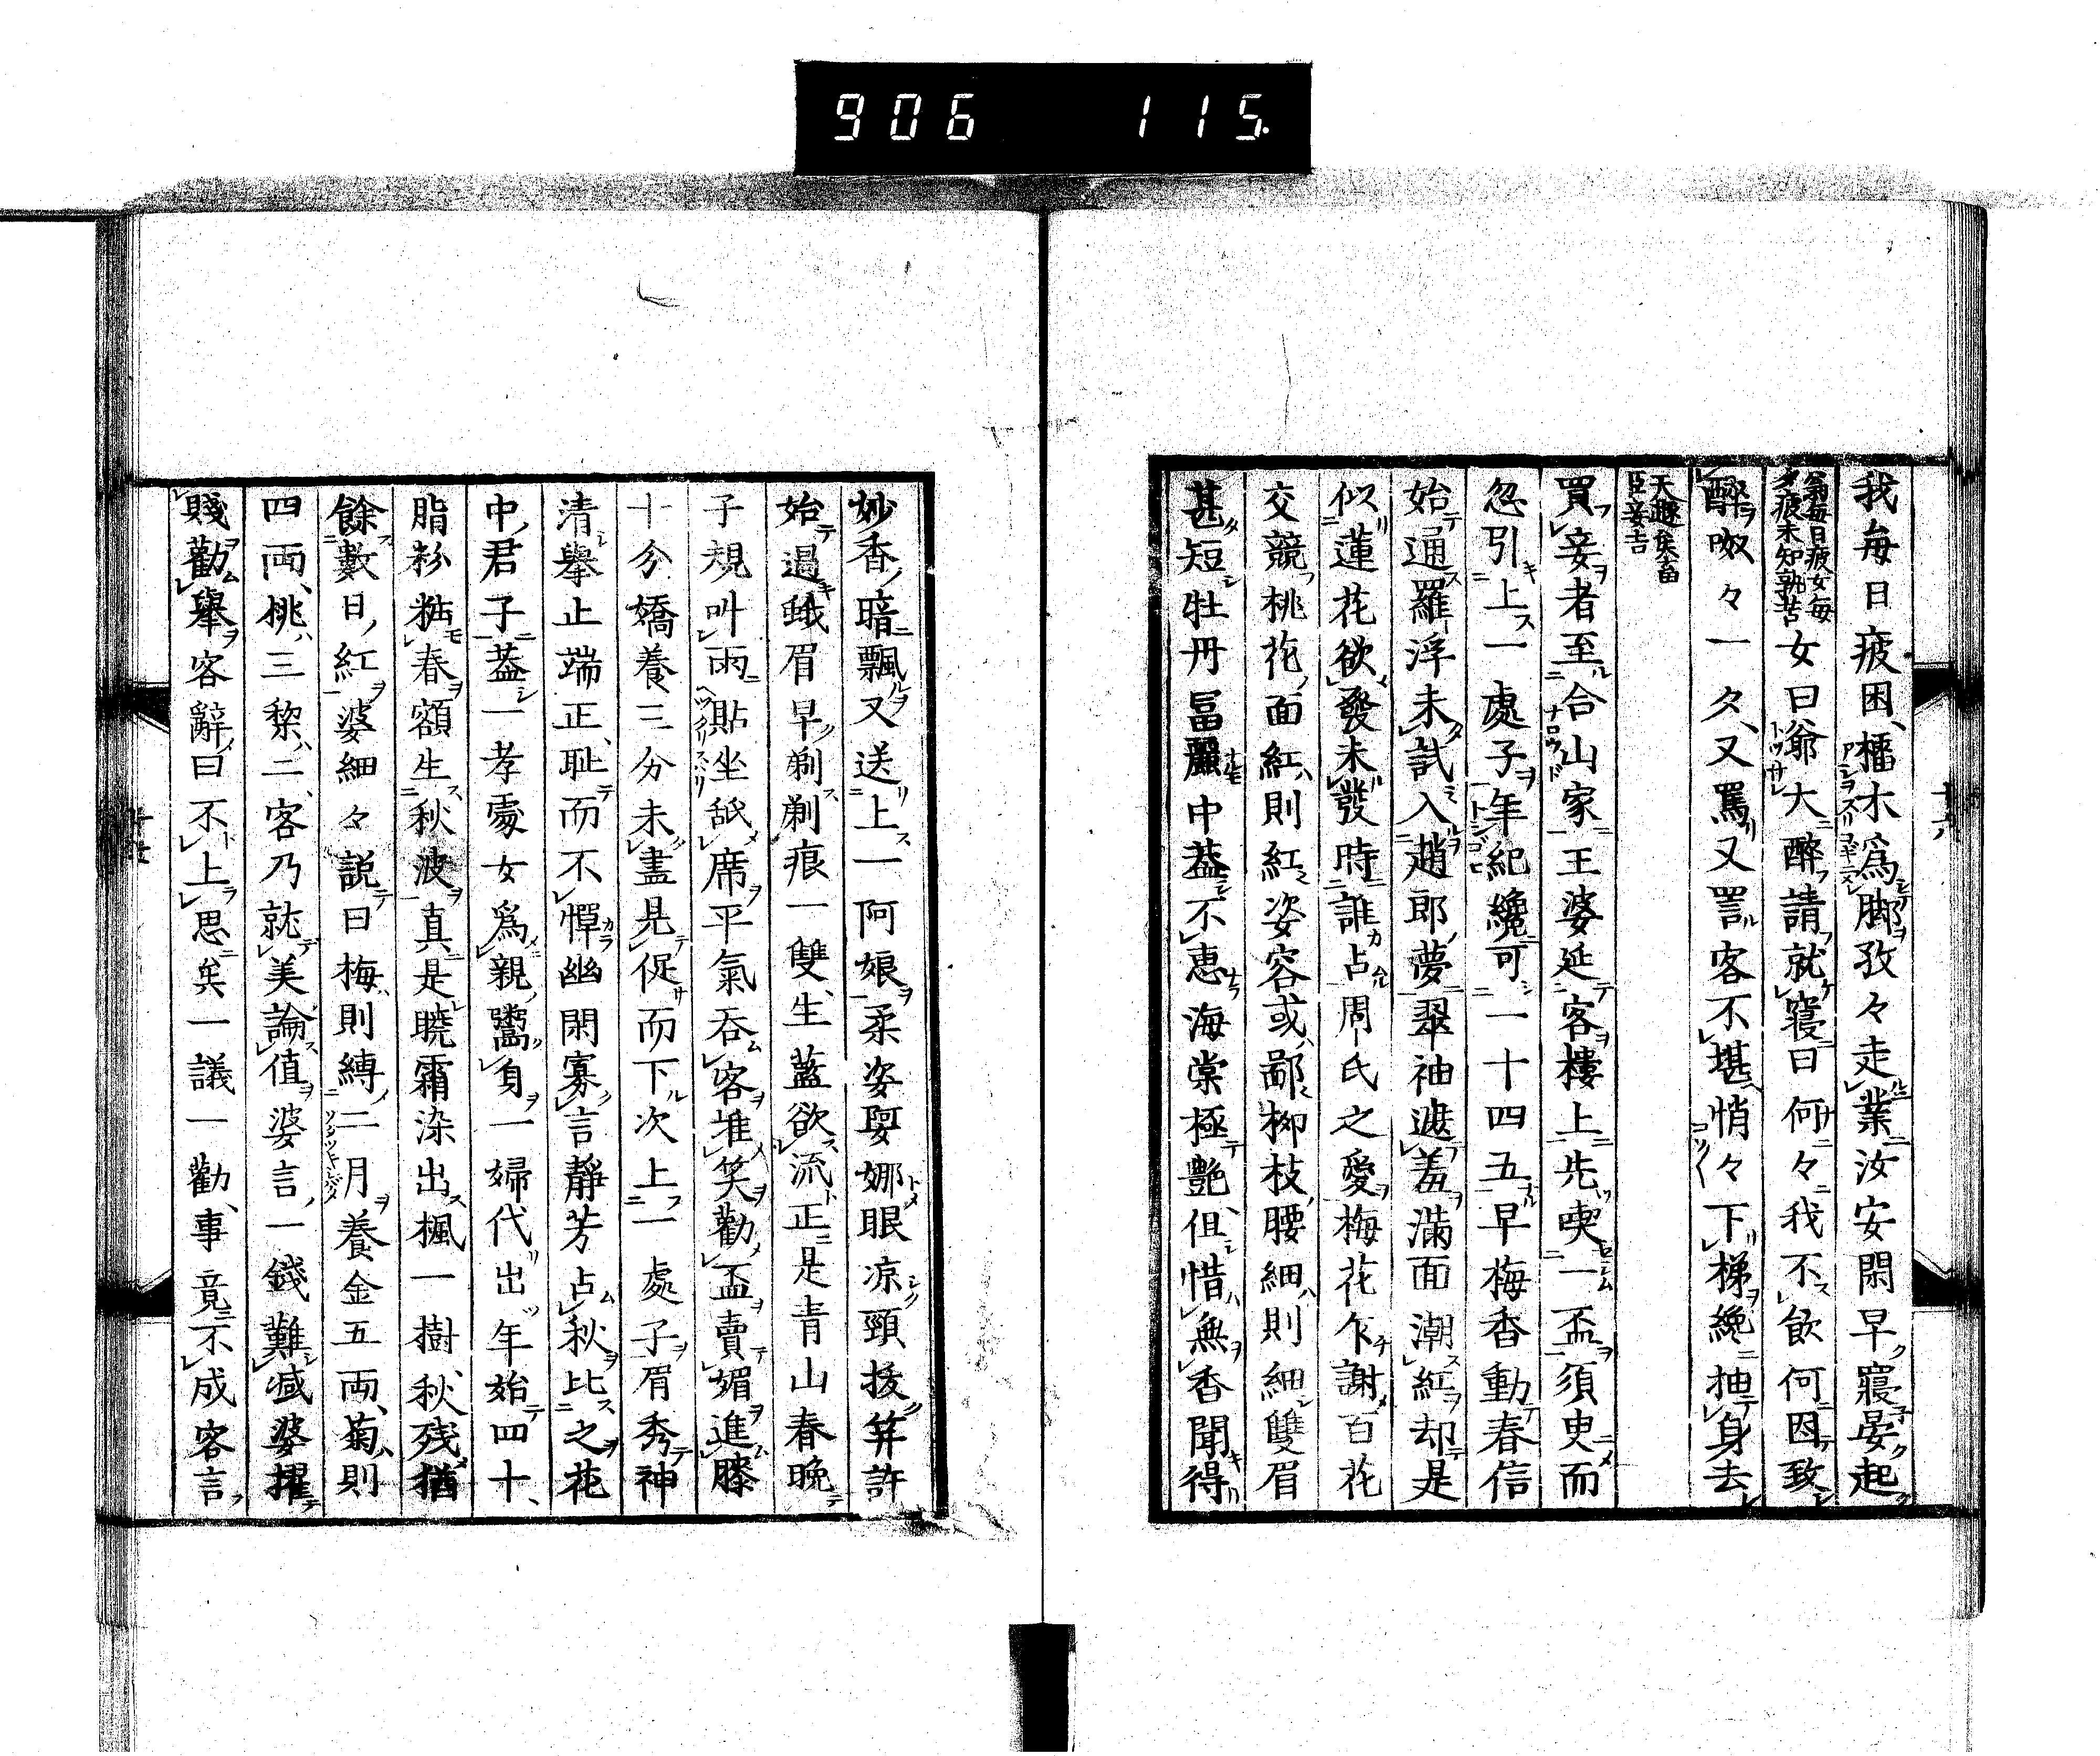 906 115.
我每日疲困、擂木爲脚孜々走業汝安閑早寢晏起
翁每日疲女每
夕疲未知孰苦
女曰爺大醉請就寢曰何々我不飲何因致
醉呶々一夕、又罵又詈客不堪悄々下梯纔抽身去
天趣集畜
臣妾吉
買妾者至合山家王婆延客樓上先喫一盃須臾而
忽引上一處子年紀纔可一十四五早梅香動春信
始通羅浮未試入趙郎夢翠袖遮羞滿面潮紅却是
似蓮花欲發未發時誰占周氏之愛梅花乍謝百花
交競桃花面紅則紅姿容或鄙柳枝腰細則細雙眉
甚短牡丹富麗中蓋不恵海棠極艶但惜無香聞得
妙香暗飄又送上一阿娘柔姿婀娜眼凉頸援筓許
始過蛾眉早剃剃痕一雙生藍欲流正是青山春晩
子規叫雨貼坐舐席平氣吞客堆笑勸盃賣媚進膝
十分嬌養三分未盡見促而下次上一處子眉秀神
清擧止端正耻而不憚幽閑寡言靜芳占秋比之花
中君子蓋一孝處女爲親鬻身一婦代出年始四十、
脂粉粘春額生秋波真是曉霜染出楓一樹秋殘猶
餘數日紅婆細々説曰梅則縛二月養金五両菊則
四両、桃三棃二、客乃就美論値婆言一錢難減婆擢
賤勸擧客辭曰不上思矣一議一勸、事竟不成客言